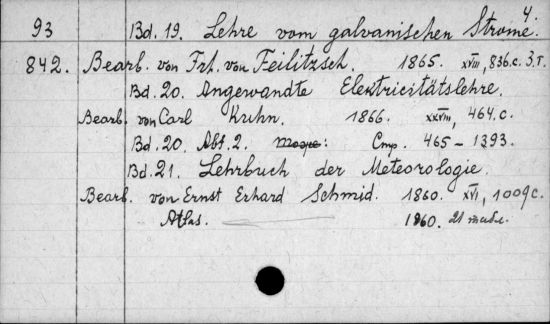 4.
93 Bd. 19. Lehre vom galvanischen Strome.
842. Bearb. von Frh. von Feilitzsch. 1865. XVIII, 836 с. 3,т.
Bd. 20. Angewandte Elektricitätslehre.
Bearb. von Carl Kuhn. 1866. XXVIII, 464 с.
Bd. 20. Abt. 2. Cmp. 465 – 1393.
Bd. 21. Lehrbuch der Meteorologie.
Bearb. von Ernst Erhard Schmid. 1860. XVI, 1009 с.
Atlas. 1860. 21 табл.